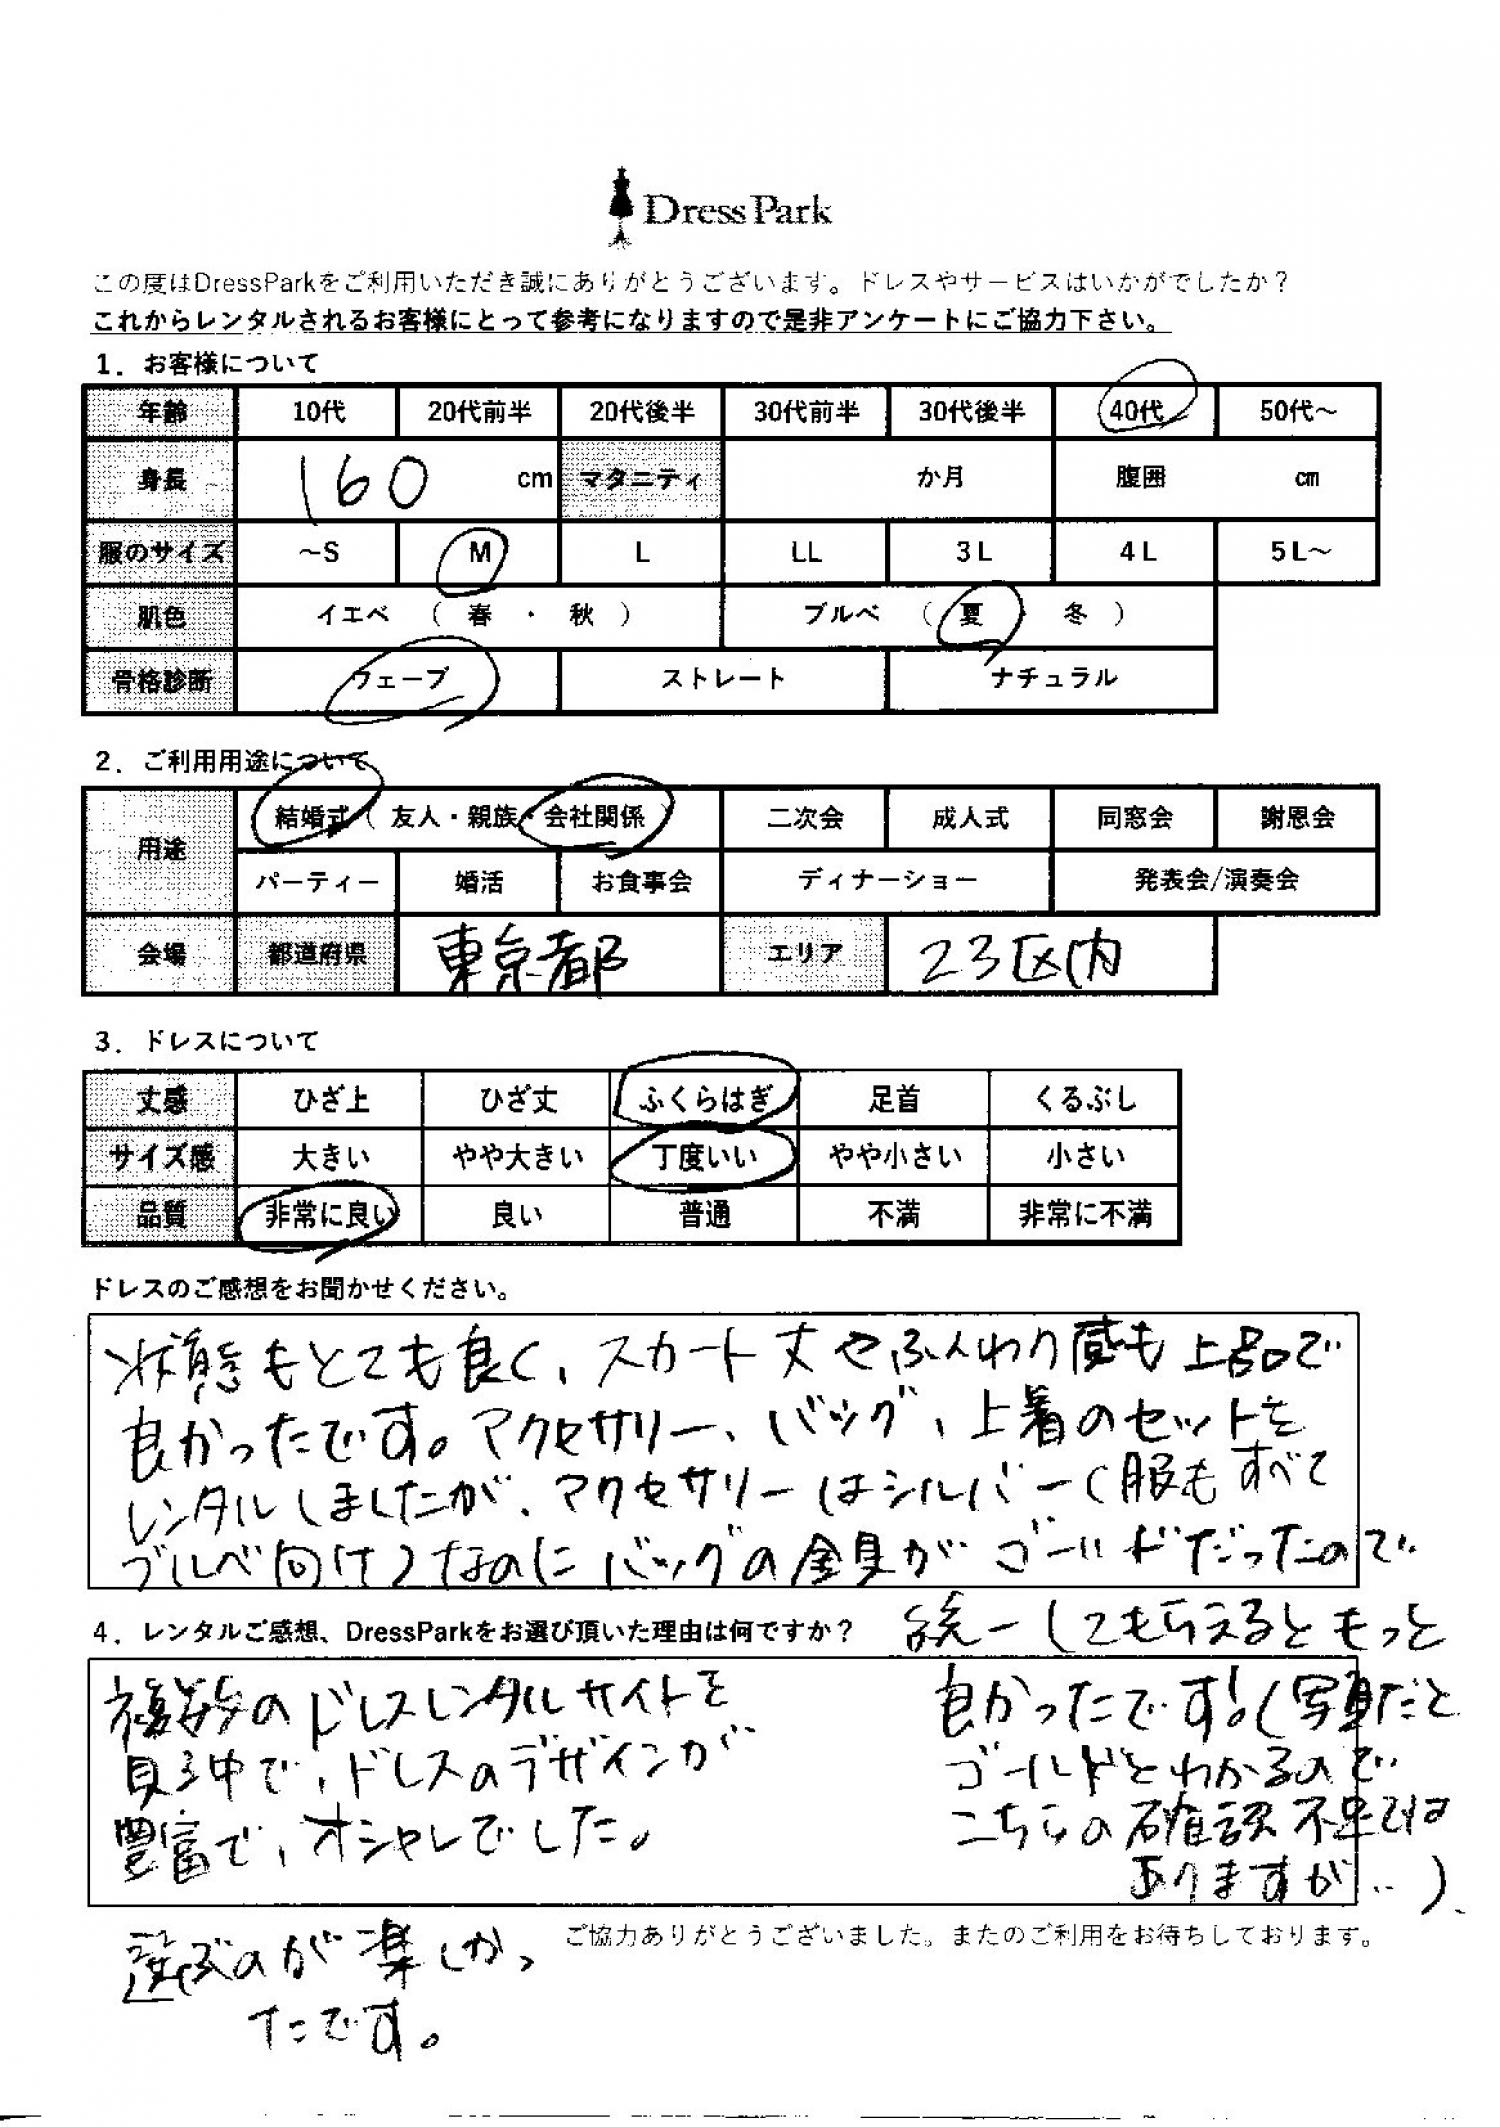 DressPark
この度はDressParkをご利用いただき誠にありがとうございます。ドレスやサービスはいかがでしたか？
これからレンタルされるお客様にとって参考になりますので是非アンケートにご協力下さい。
1．お客様について
年齢 10代 20代前半 20代後半 30代前半 30代後半 40代 50代～
身長 160 cm マタニティ か月 腹囲 cm
服のサイズ ～S M L LL 3L 4L 5L～
肌色 イエベ （ 春 ・ 秋 ） ブルベ （ 夏 ・ 冬 ）
骨格診断 ウェーブ ストレート ナチュラル
2．ご利用用途について
用途 結婚式（ 友人・親族・会社関係 ） 二次会 成人式 同窓会 謝恩会
パーティー 婚活 お食事会 ディナーショー 発表会/演奏会
会場 都道府県 東京都 エリア 23区内
3．ドレスについて
丈感 ひざ上 ひざ丈 ふくらはぎ 足首 くるぶし
サイズ感 大きい やや大きい 丁度いい やや小さい 小さい
品質 非常に良い 良い 普通 不満 非常に不満
ドレスのご感想をお聞かせください。
状態もとても良く、スカート丈やふんわり感も上品で
良かったです。アクセサリー、バッグ、上着のセットを
レンタルしましたが、アクセサリーはシルバー（服もすべて
ブルベ向け）なのにバッグの金具がゴールドだったので
統一してもらえるともっと
良かったです！（写真だと
ゴールドとわかるので
こちらの確認不足では
ありますが…）
4．レンタルご感想、DressParkをお選び頂いた理由は何ですか？
複数のドレスレンタルサイトを
見る中で、ドレスのデザインが
豊富で、オシャレでした。
選ぶのが楽しかっ
たです。
ご協力ありがとうございました。またのご利用をお待ちしております。